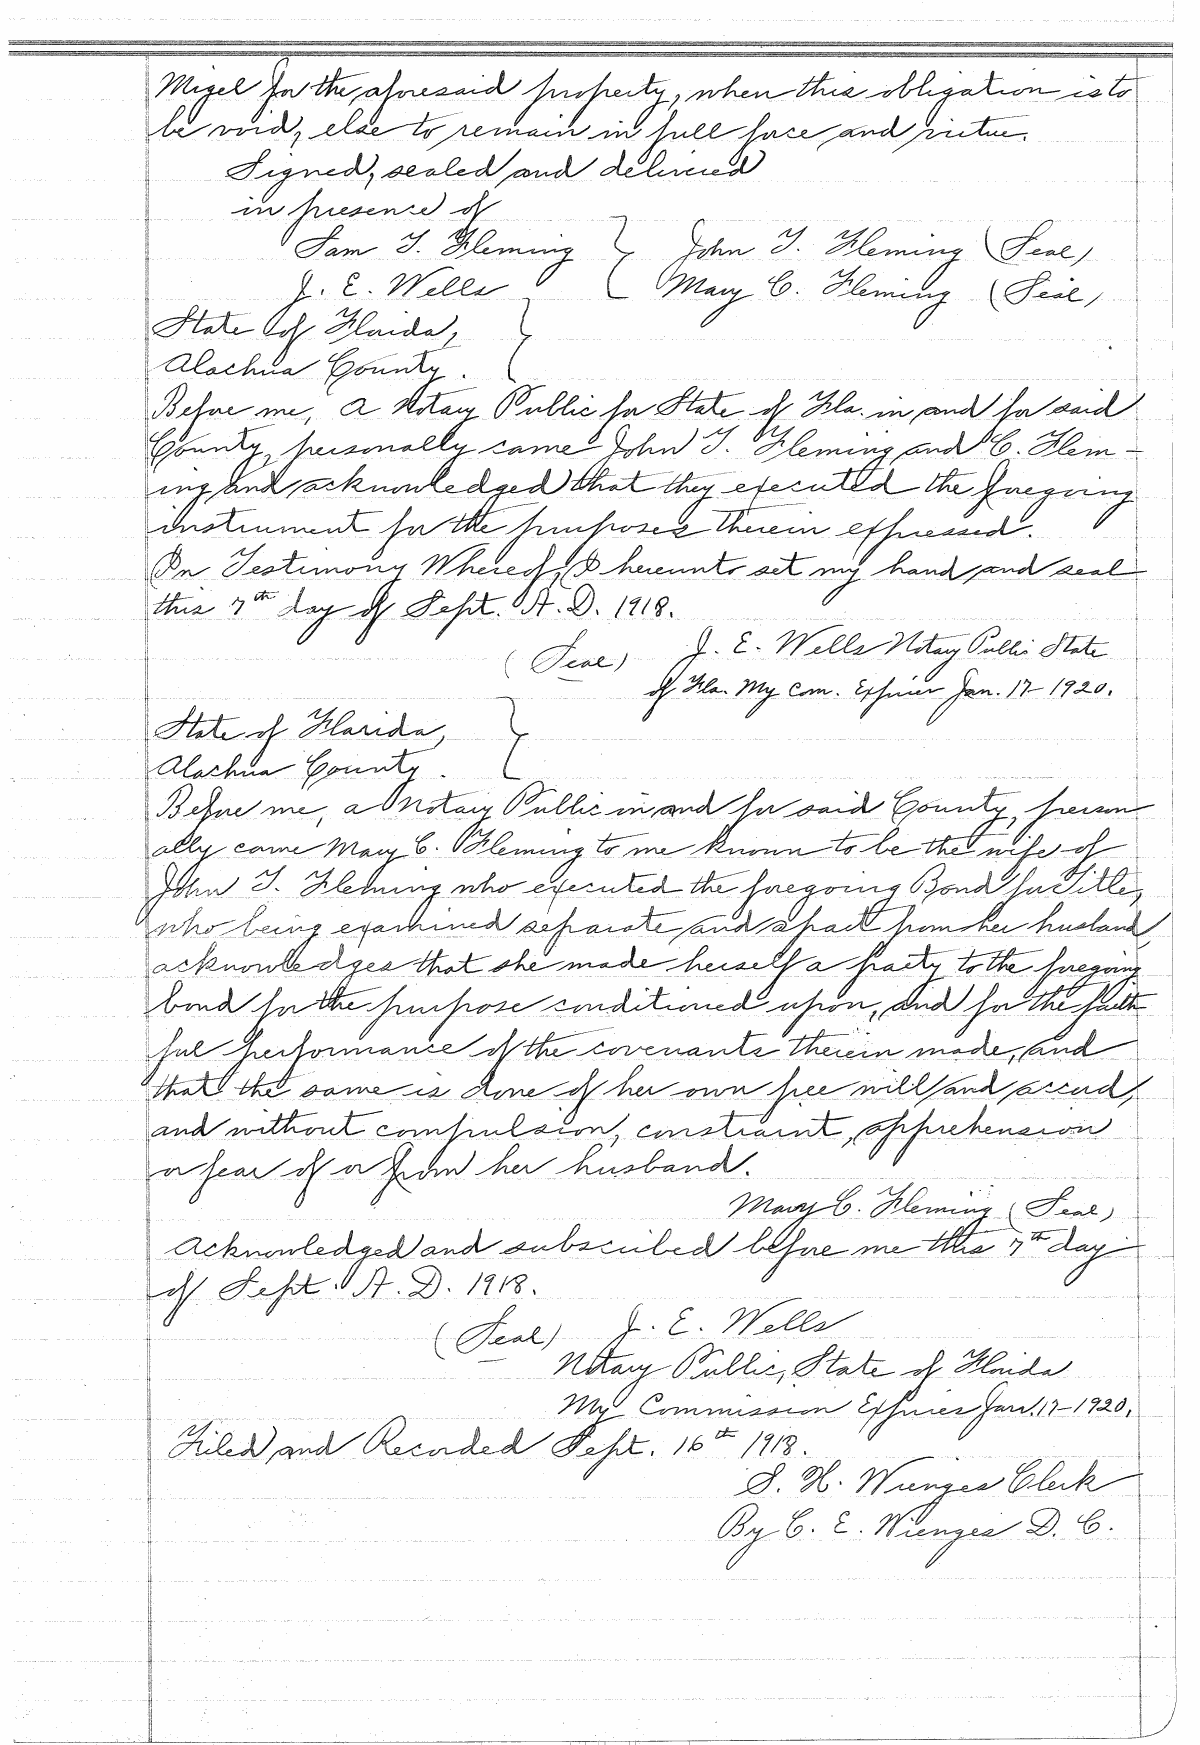 Migel for the aforesaid property, when this obligation is to
be void, else to remain in full force and virtue.
Signed, sealed and delivered
in presence of
Sam T. Fleming } John T. Fleming (Seal)
J. E. Wells { Mary C. Fleming (Seal)
State of Florida, }
Alachua County.
Before me, a Notary Public for State of Fla. in and for said
County, personally came John T. Fleming and C. Flem-
ing and acknowledged that they executed the foregoing
instrument for the purposes therein expressed.
In Testimony Whereof, I hereunto set my hand and seal
this 7th day of Sept. A. D. 1918.
(Seal) J. E. Wells Notary Public State
of Fla. My Com. Expires Jan. 17-1920.
State of Florida, }
Alachua County.
Before me, a Notary Public in and for said County, person
ally came Mary C. Fleming to me known to be the wife of
John T. Fleming who executed the foregoing Bond for Title,
who being examined separate and apart from her husband,
acknowledges that she made herself a party to the foregoing
bond for the purpose conditioned upon, and for the faith
ful performance of the covenants therein made, and
that the same is done of her own free will and accord,
and without compulsion, constraint, apprehension
or fear of or from her husband.
Mary C. Fleming (Seal)
Acknowledged and subscribed before me this 7th day
of Sept. A. D. 1918.
(Seal) J. E. Wells
Notary Public, State of Florida
My Commission Expires Jan. 17-1920.
Filed and Recorded Sept. 16th 1918.
S. H. Wienges Clerk
By C. E. Wienges D. C.